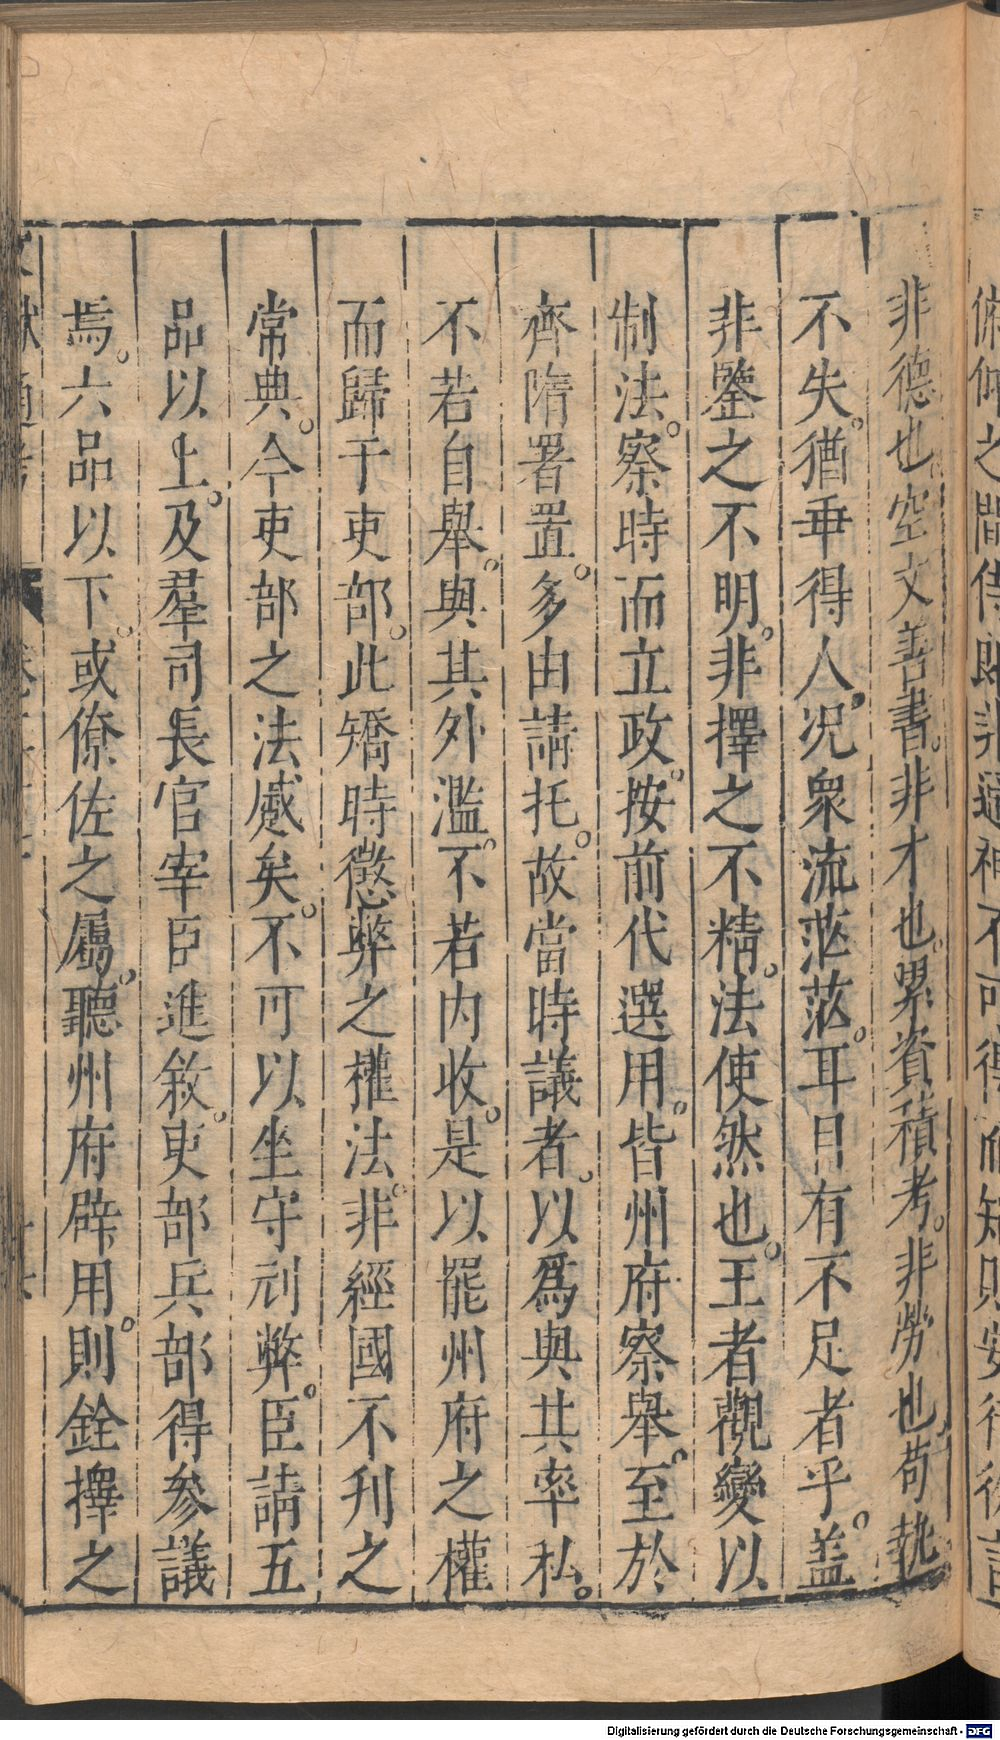 非德也。空文善書。非才也。累資積考。非勞也。苟執
不失。猶乖得人。况衆流茫茫。耳目有不足者乎。盖
非鑒之不明。非擇之不精。法使然也。王者觀變以
制法。察時而立政。按前代選用。皆州府察舉。至於
齊隋署置。多由請托。故當時議者。以爲與其率私。
不若自舉。與其外濫。不若内收。是以罷州府之權
而歸于吏部。此矯時懲弊之權法。非經國不刊之
常典。今吏部之法蹙矣。不可以坐守刓弊。臣請五
品以上。及羣司長官宰臣進敘。吏部兵部得參議
焉。六品以下。或僚佐之屬。聽州府辟用。則銓擇之
Digitalisierung gefördert durch die Deutsche Forschungsgemeinschaft - DFG